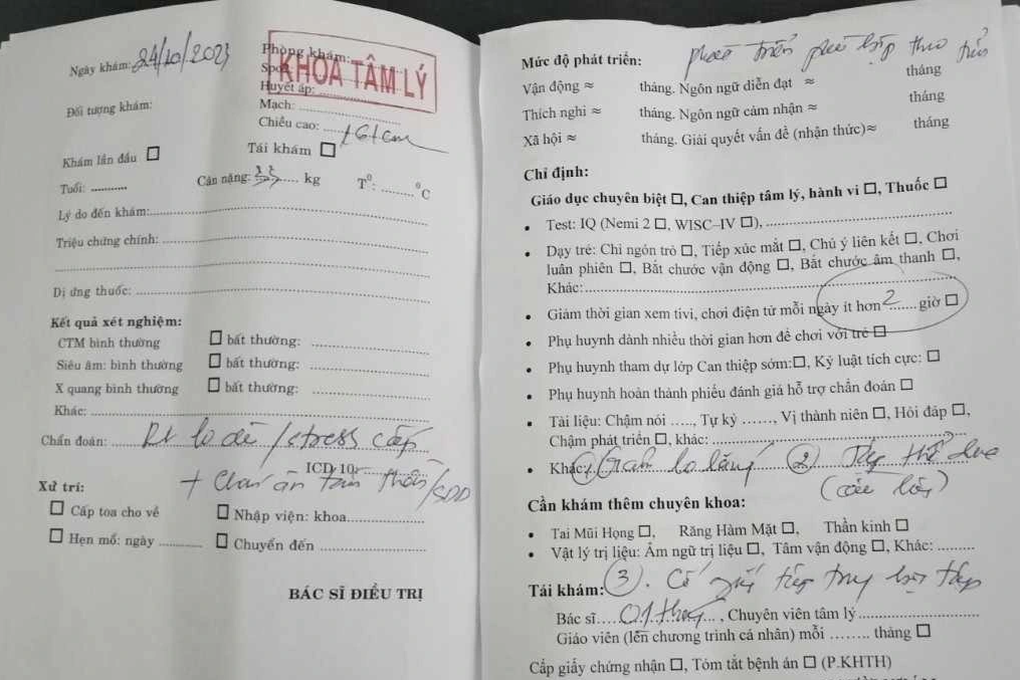 Ngày khám: 24/10/2023
Phòng khám:
KHOA TÂM LÝ
Huyết áp:
Đối tượng khám:
Mạch:
Chiều cao:
Khám lần đầu ☐ Tái khám ☐
Tuổi: .......... Cân nặng: 33 kg T⁰: ....... ⁰C
Lý do đến khám:
Triệu chứng chính:
Dị ứng thuốc:
Kết quả xét nghiệm:
CTM bình thường ☐ bất thường:
Siêu âm: bình thường ☐ bất thường:
X quang bình thường ☐ bất thường:
Khác:
Chẩn đoán: RL lo âu / stress cấp
ICD 10:
+ Chán ăn tâm thần/SDD
Xử trí:
☐ Cấp toa cho về ☐ Nhập viện: khoa
☐ Hẹn mổ: ngày ☐ Chuyển đến
BÁC SĨ ĐIỀU TRỊ
Mức độ phát triển: phát triển phù hợp theo tuổi
Vận động ≈ tháng. Ngôn ngữ diễn đạt ≈ tháng
Thích nghi ≈ tháng. Ngôn ngữ cảm nhận ≈ tháng
Xã hội ≈ tháng. Giải quyết vấn đề (nhận thức)≈ tháng
Chỉ định:
Giáo dục chuyên biệt ☐, Can thiệp tâm lý, hành vi ☐, Thuốc ☐
• Test: IQ (Nemi 2 ☐, WISC–IV ☐),
• Dạy trẻ: Chỉ ngón trỏ ☐, Tiếp xúc mắt ☐, Chú ý liên kết ☐, Chơi
luân phiên ☐, Bắt chước vận động ☐, Bắt chước âm thanh ☐,
Khác:
• Giảm thời gian xem tivi, chơi điện tử mỗi ngày ít hơn 2 giờ ☐
• Phụ huynh dành nhiều thời gian hơn để chơi với trẻ ☐
• Phụ huynh tham dự lớp Can thiệp sớm:☐, Kỷ luật tích cực: ☐
• Phụ huynh hoàn thành phiếu đánh giá hỗ trợ chẩn đoán ☐
• Tài liệu: Chậm nói ....., Tự kỷ ......, Vị thành niên ☐, Hỏi đáp ☐,
Chậm phát triển ☐, khác:
• Khác: (1) Giảm lo lắng (2) Tập thể dục
(cầu lông)
Cần khám thêm chuyên khoa:
• Tai Mũi Họng ☐, Răng Hàm Mặt ☐, Thần kinh ☐
• Vật lý trị liệu: Âm ngữ trị liệu ☐, Tâm vận động ☐, Khác: .........
Tái khám: (3). Cố gắng tập trung học tập
Bác sĩ.... 01 tháng ..., Chuyên viên tâm lý
Giáo viên (lên chương trình cá nhân) mỗi ........ tháng ☐
Cấp giấy chứng nhận ☐, Tóm tắt bệnh án ☐ (P.KHTH)